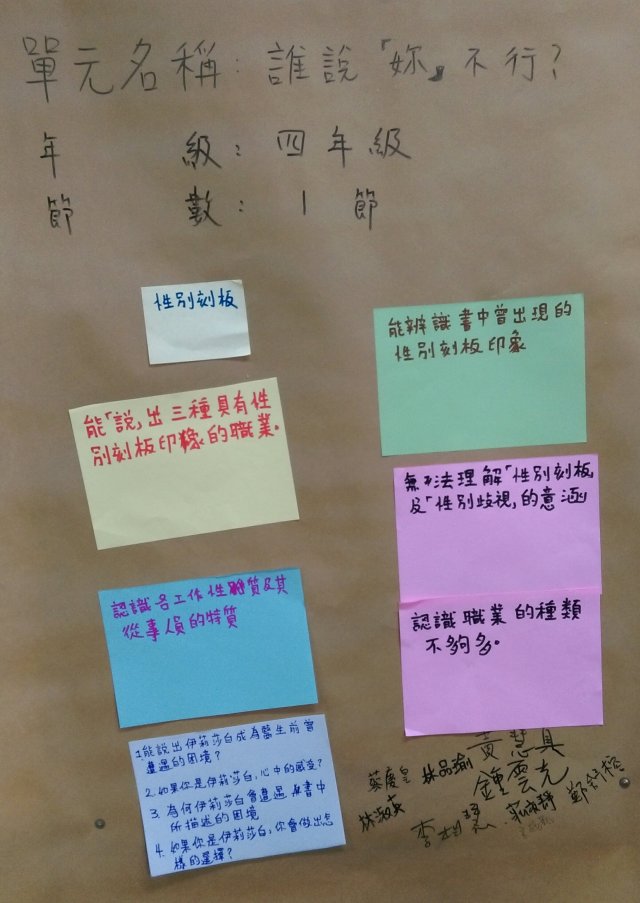 單元名稱：誰說「妳」不行？
年　　級：四年級
節　　數：1　節
性別刻板
能「說」出三種具有性
別刻板印象的職業。
認識各工作性質及其
從事人員的特質
1.能說出伊莉莎白成為醫生前曾
遭遇的困境？
2.如果你是伊莉莎白，心中的感受？
3.為何伊莉莎白會遭遇書中
所描述的困境
4.如果你是伊莉莎白，你會做出怎
樣的選擇？
能辨識書中曾出現的
性別刻板印象
無法理解「性別刻板
及「性別歧視」的意涵
認識職業的種類
不夠多。
林品瑜
林淑英